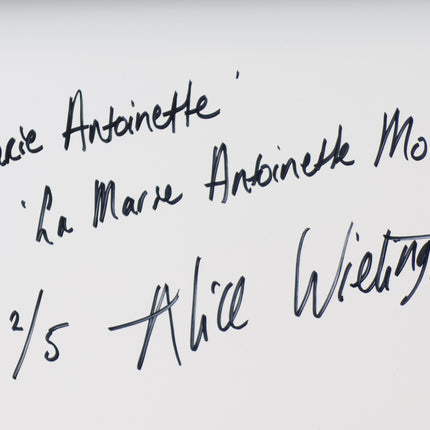 arie Antoinette'
'La Marie Antoinette Mo
2/5 Alice Wieling